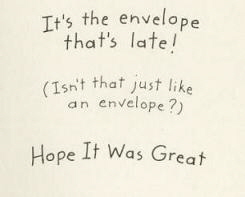 It's the envelope
that's late!
(Isn't that just like
an envelope?)
Hope It Was Great